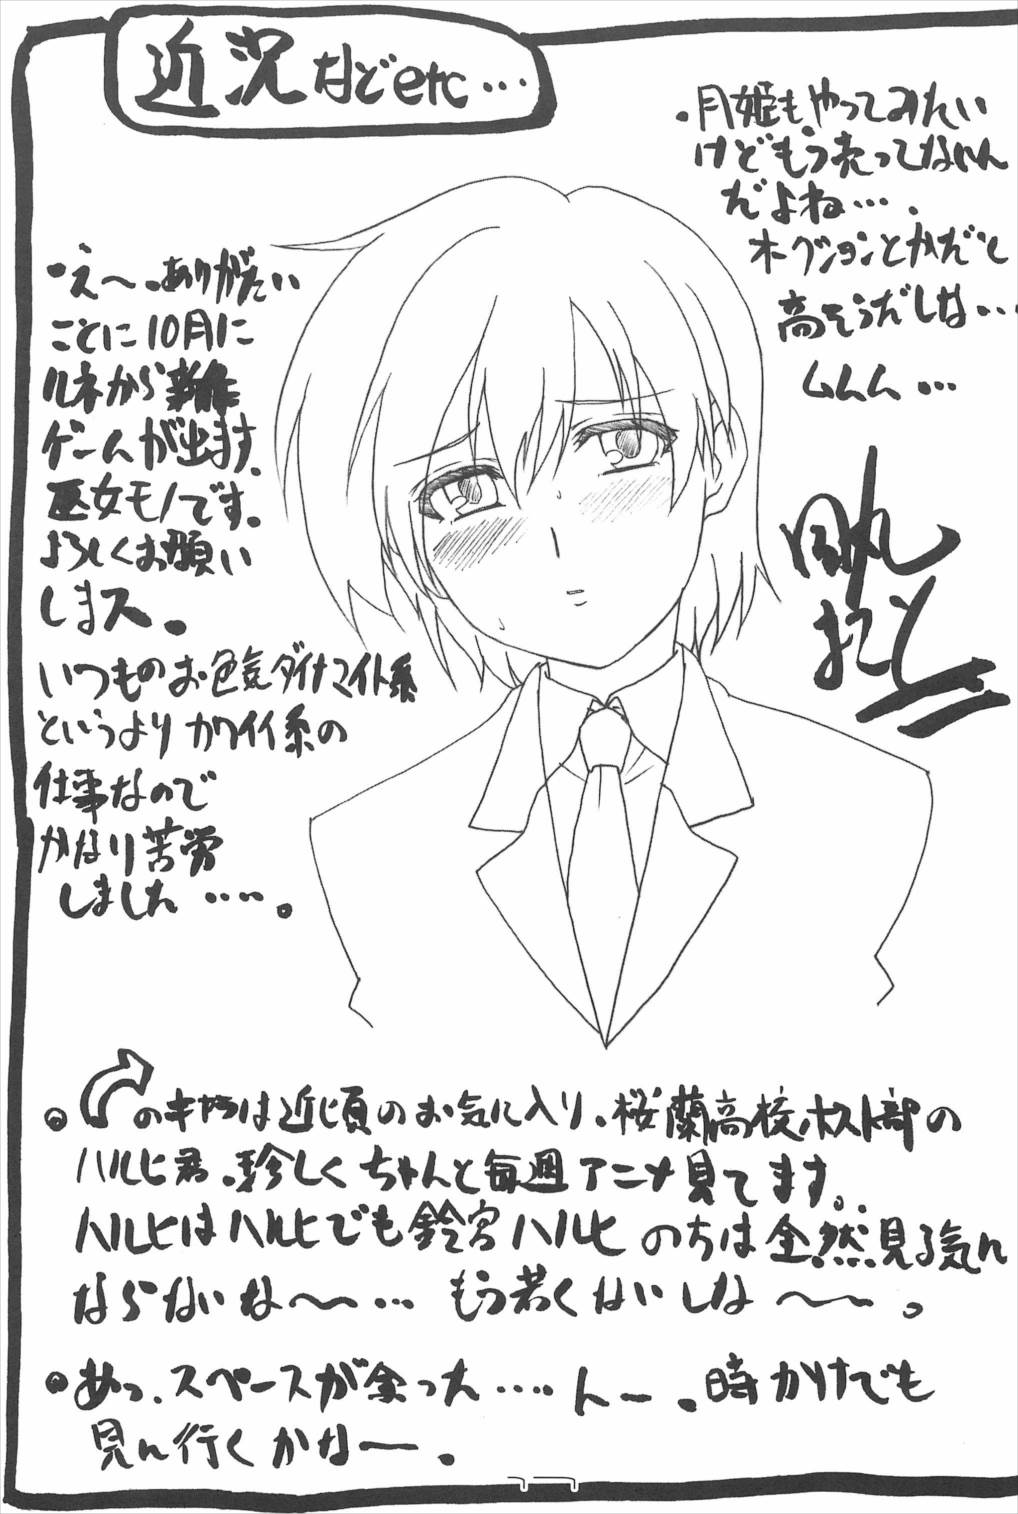 近況などetc…
・え〜、ありがたい
ことに10月に
ルネから新作
ゲームが出ます。
巫女モノです。
よろしくお願い
しまス。
いつものお色気ダイナマイト系
というよりカワイイ系の
仕事なので
かなり苦労
しました‥‥。
・月姫も、やってみたい
けどもう売ってないん
だよね…。
オークションとかだと
高そうだしな…
ムムム…
帆
まこと
のキャラは近頃のお気に入り、桜蘭高校ホスト部の
ハルヒ君。珍しくちゃんと毎週アニメ見てます。
ハルヒはハルヒでも鈴宮ハルヒのちは全然見る気に
ならないな〜〜… もう若くはいしな〜〜。
あっ、スペースが余った‥‥んー。時かけでも
見に行くかなー。